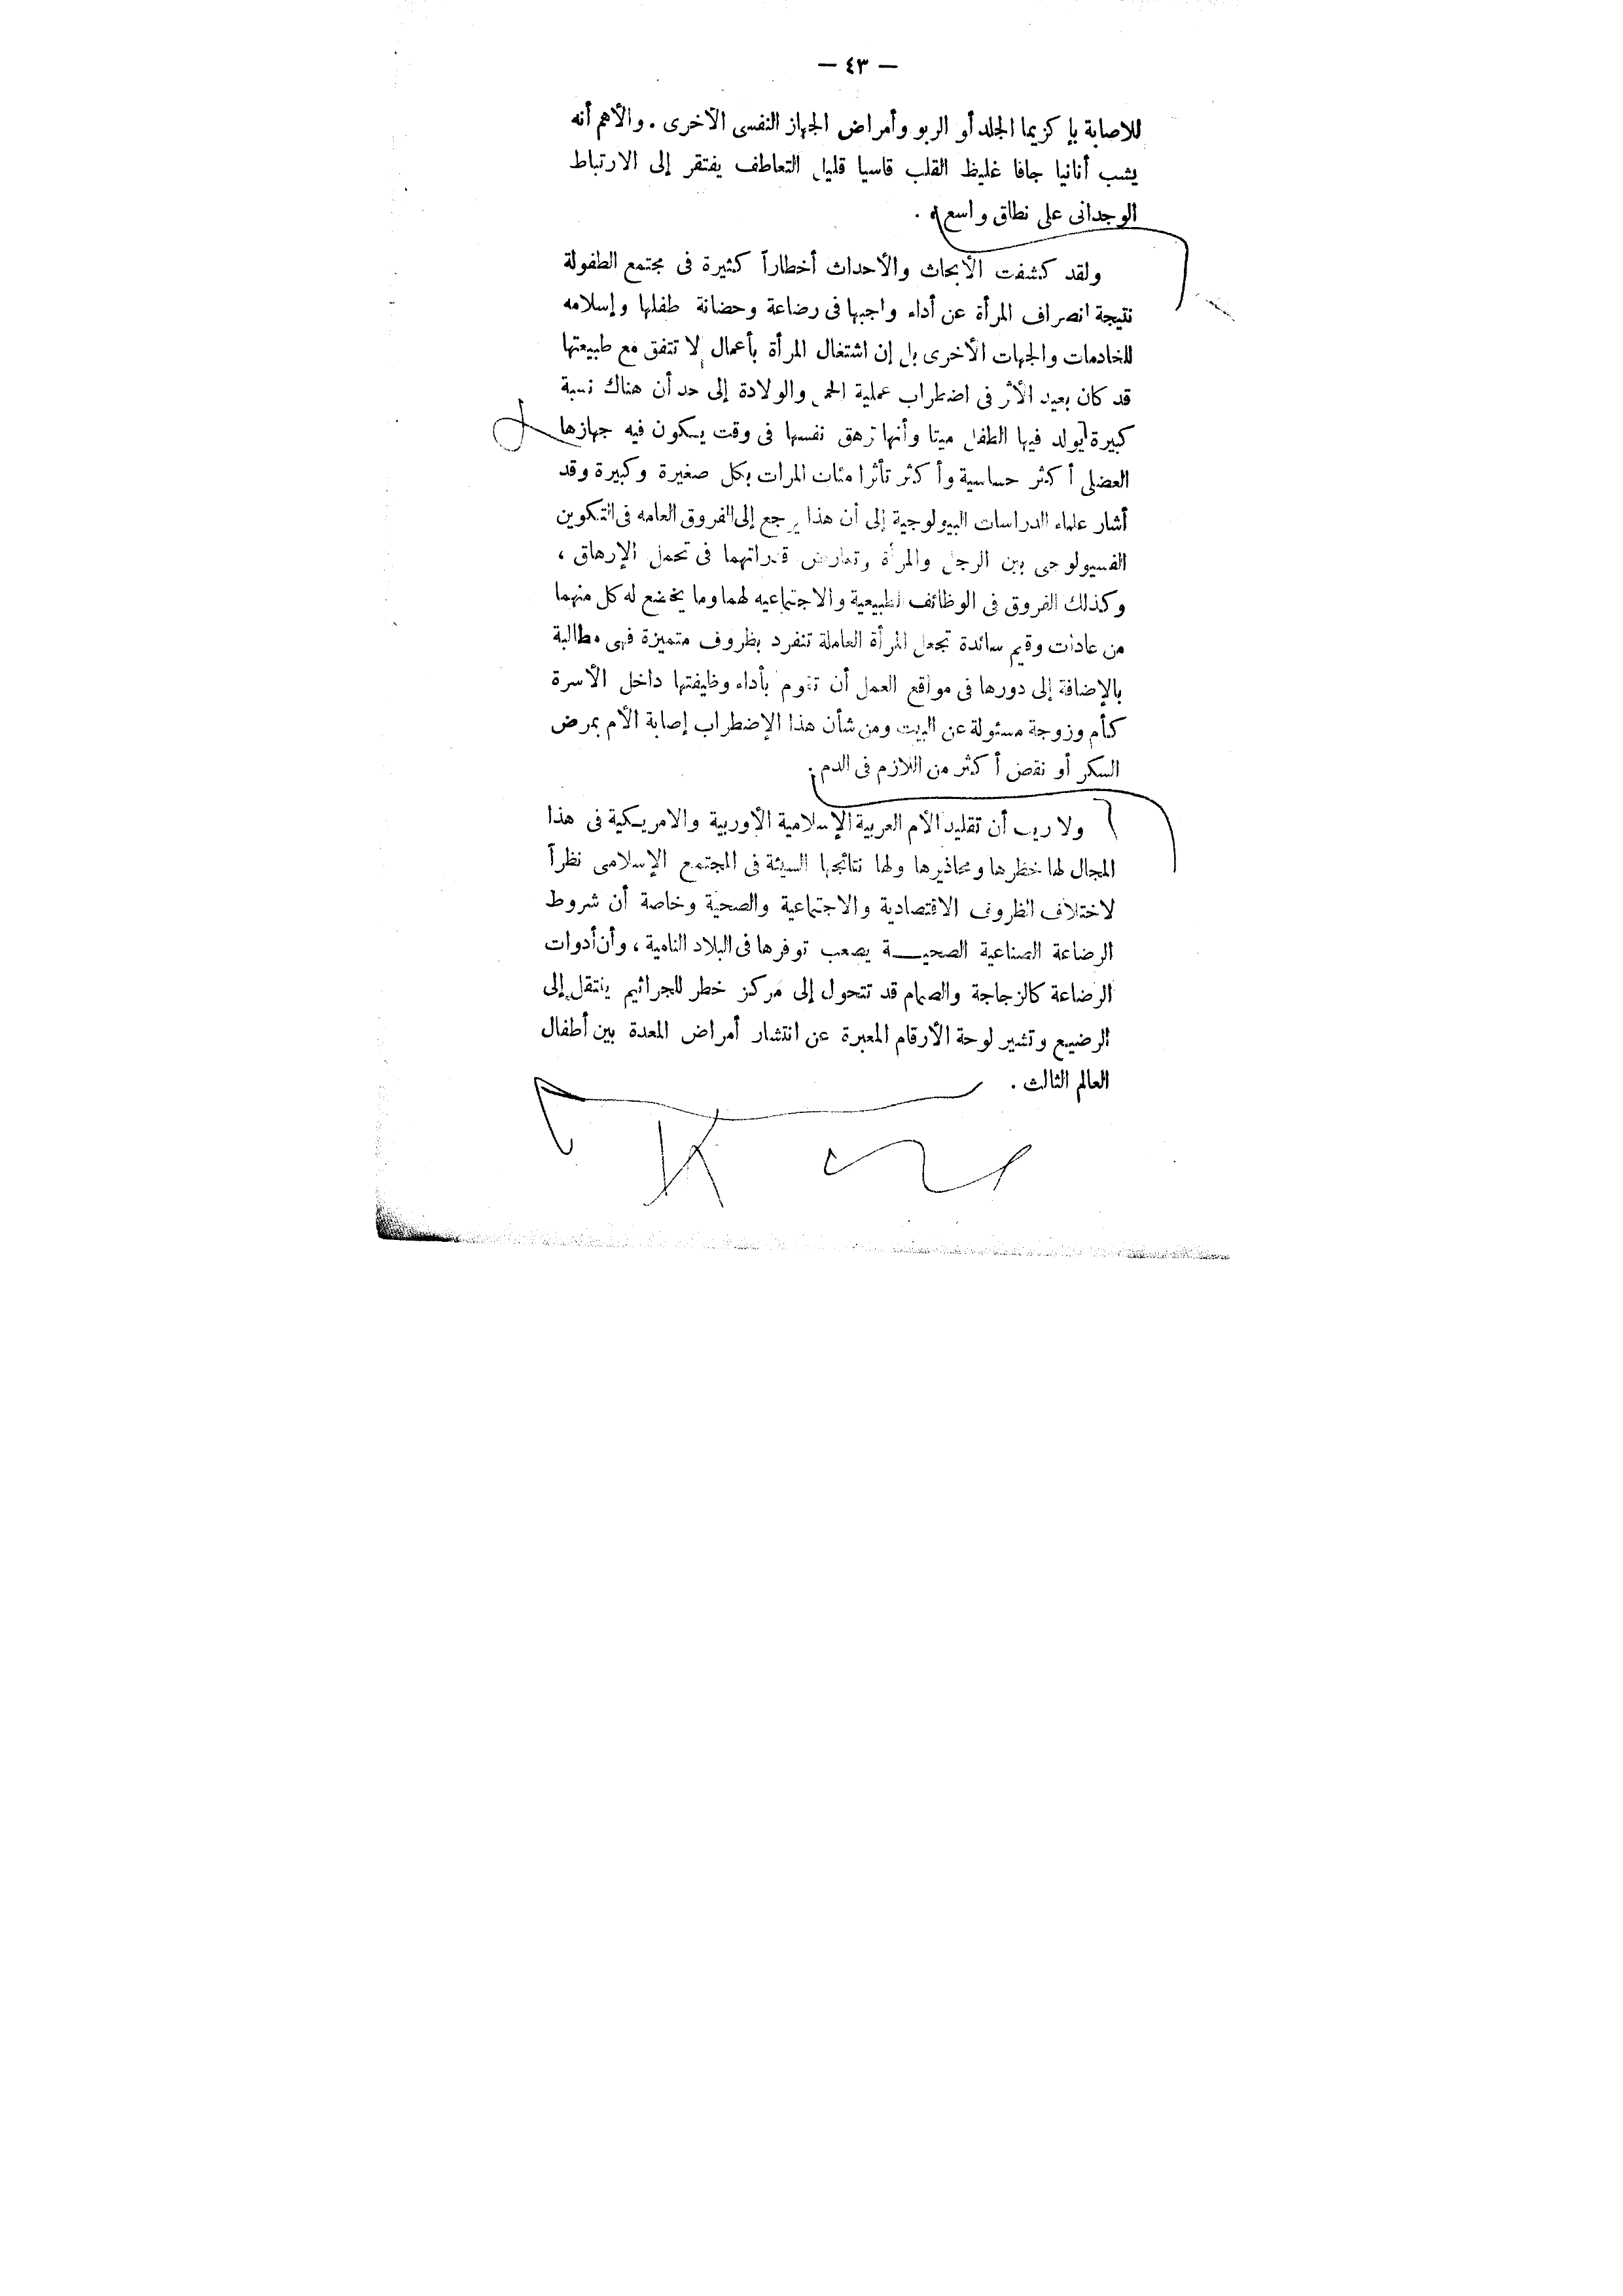 — ٤٣ —
للاصابة بإكزيما الجلد أو الربو وأمراض الجهاز النفسى الآخرى . والأهم أنه
يشب أنانيا جافا غليظ القلب قاسيا قليل التعاطف يفتقر إلى الارتباط
الوجدانى على نطاق واسع .
ولقد كشفت الأبحاث والأحداث أخطاراً كثيرة فى مجتمع الطفولة
نتيجة انصراف المرأة عن أداء واجبها فى رضاعة وحضانة طفلها وإسلامه
للخادمات والجهات الأخرى بل إن اشتغال المرأة بأعمال لا تتفق مع طبيعتها
قد كان بعيد الأثر فى اضطراب عملية الحمل والولادة إلى حد أن هناك نسبة
كبيرة يولد فيها الطفل ميتا وأنها ترهق نفسها فى وقت يكون فيه جهازها
العضلى أكثر حساسية وأكثر تأثرا مئات المرات بكل صغيرة وكبيرة وقد
أشار علماء الدراسات البيولوجية إلى أن هذا يرجع إلى الفروق العامه فى التكوين
الفسيولوجى بين الرجل والمرأة وتعارض قدراتهما فى تحمل الإرهاق ،
وكذلك الفروق فى الوظائف الطبيعية والاجتماعيه لهما وما يخضع له كل منهما
من عادات وقيم سائدة تجعل المرأة العاملة تنفرد بظروف متميزة فهى مطالبة
بالإضافة إلى دورها فى مواقع العمل أن تقوم بأداء وظيفتها داخل الأسرة
كأم وزوجة مسئولة عن البيت ومن شأن هذا الإضطراب إصابة الأم بمرض
السكر أو نقص أكثر من اللازم فى الدم .
ولا ريب أن تقليد الأمم العربية الإسلامية الأوربية والامريكية فى هذا
المجال لها خطرها ومحاذيرها ولها نتائجها السيئة فى المجتمع الإسلامى نظراً
لاختلاف الظروف الاقتصادية والاجتماعية والصحية وخاصة أن شروط
الرضاعة الصناعية الصحيـــة يصعب توفرها فى البلاد النامية ، وأن أدوات
الرضاعة كالزجاجة والصمام قد تتحول إلى مركز خطر للجراثيم ينتقل إلى
الرضيع وتشير لوحة الأرقام المعبرة عن انتشار أمراض المعدة بين أطفال
العالم الثالث .